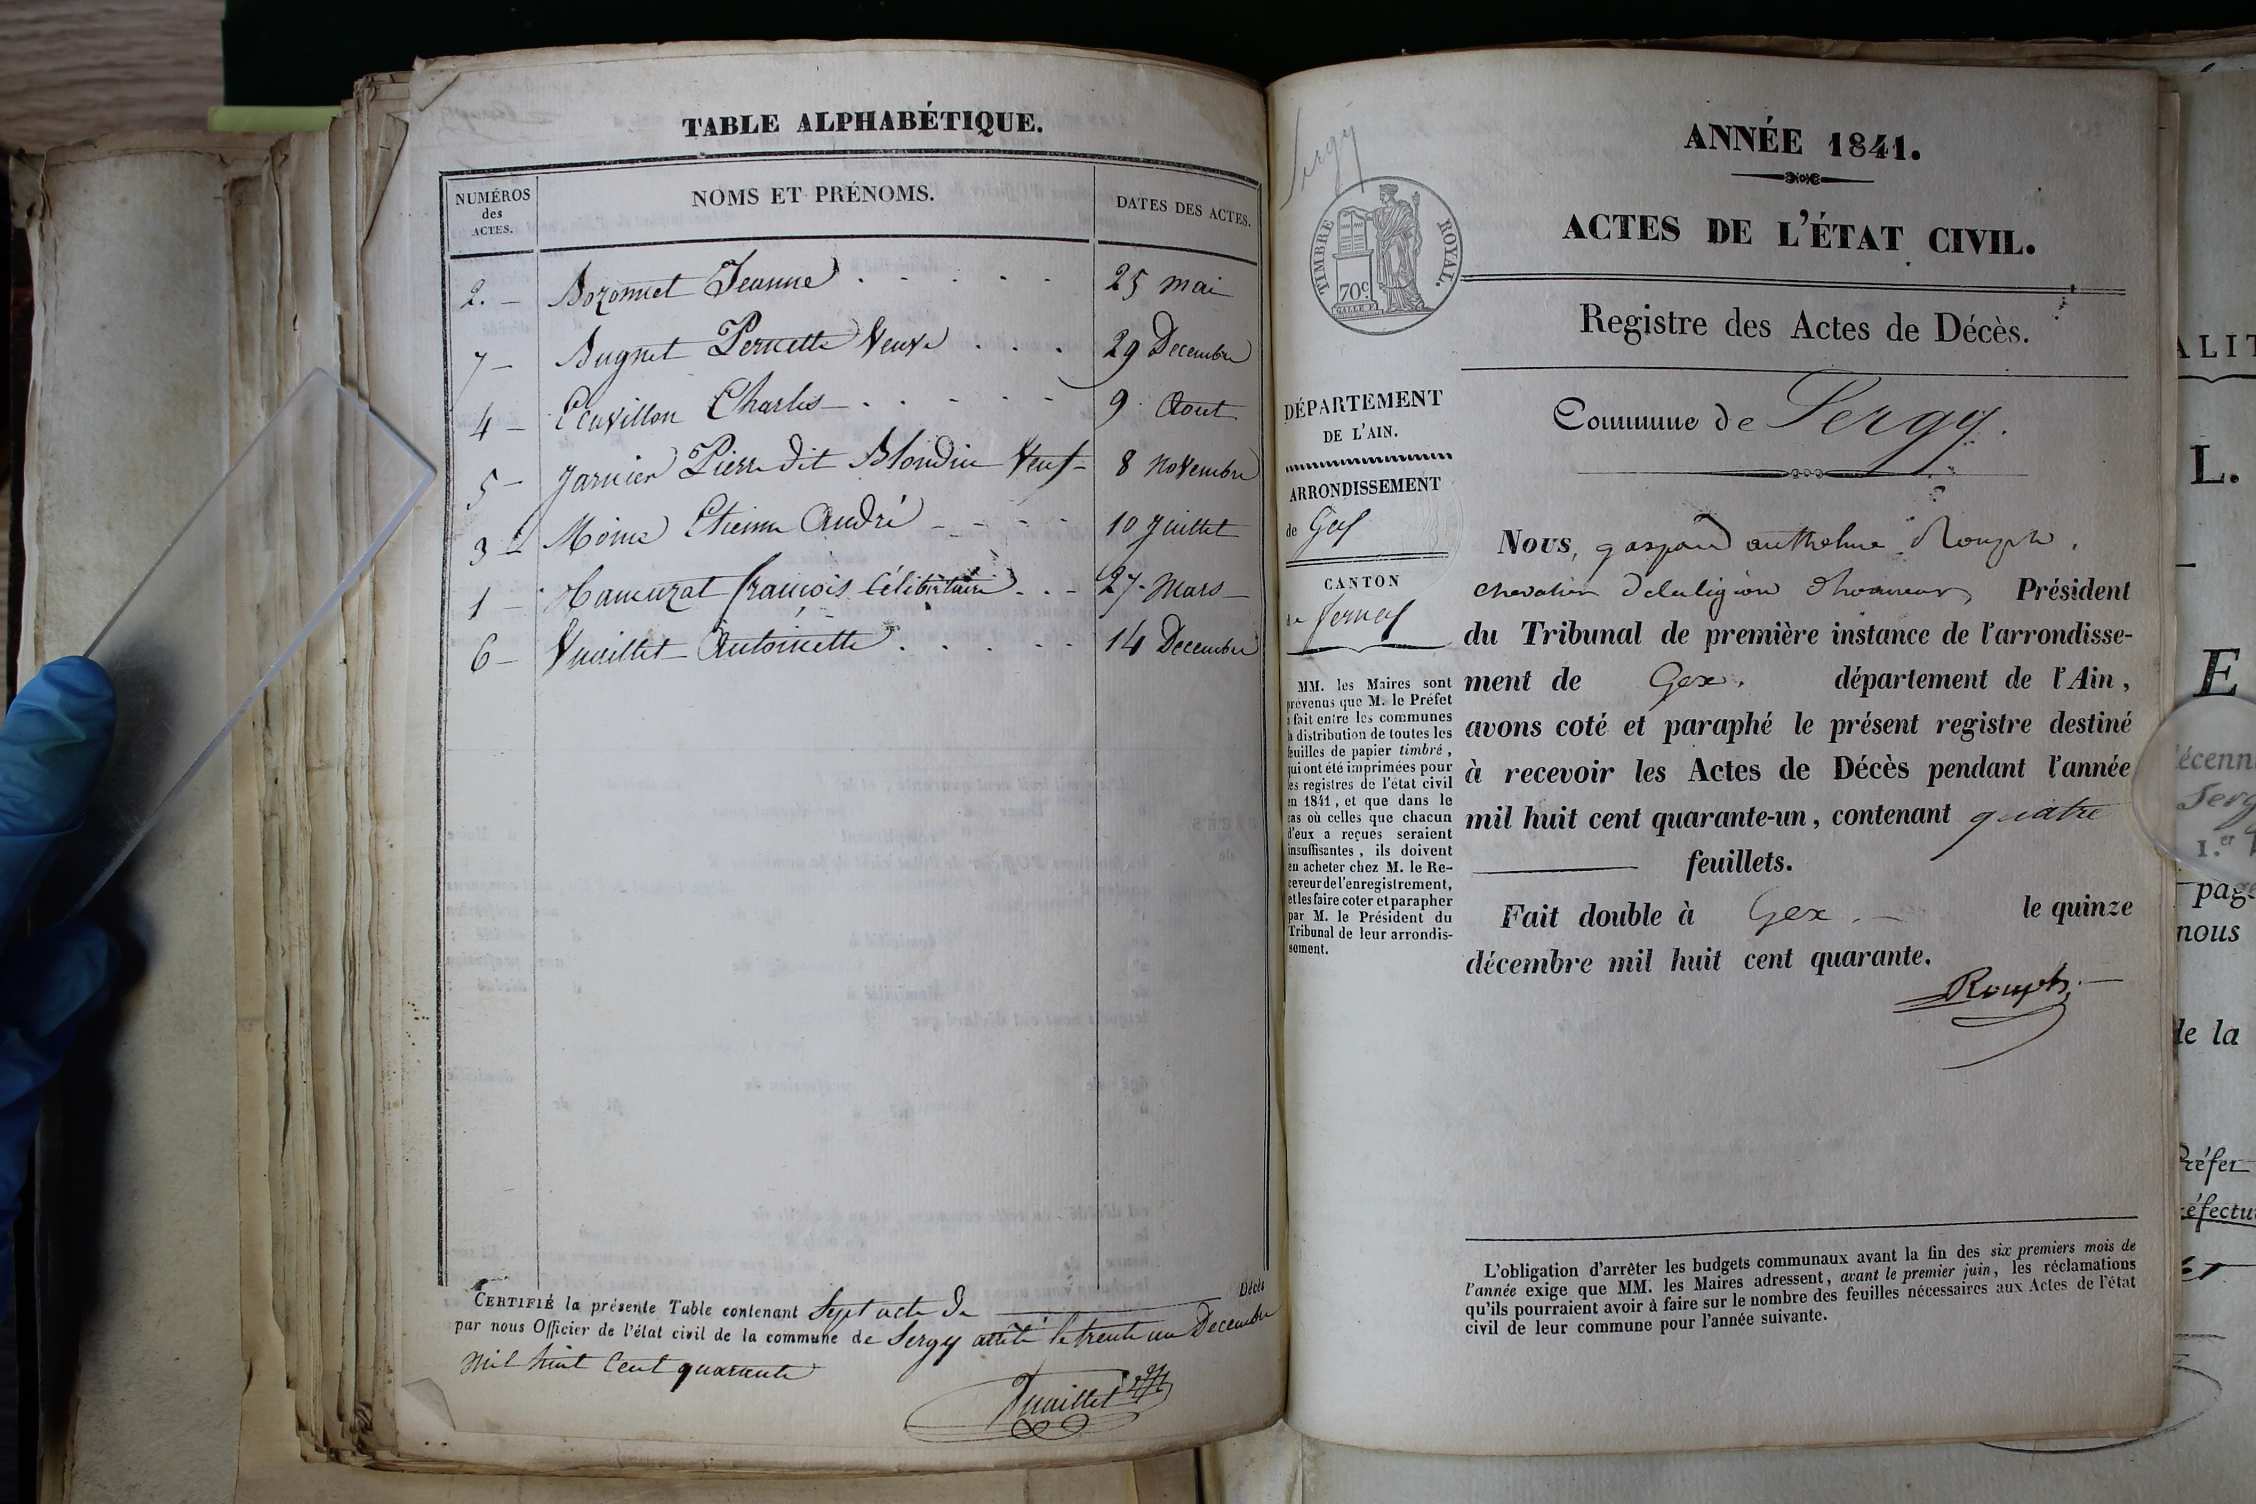 TABLE ALPHABÉTIQUE.
NUMÉROS des ACTES.
NOMS ET PRÉNOMS.
DATES DES ACTES.
2. - Bozonnet Jeanne 25 mai
7 - Bugnet Pernette Veuve 29 Decembre
4 - Charles 9 Aout
5 - Jarnier Pierre dit Blondin Veuf 8 Novembre
3 - Moine Etienne André 10 Juillet
1 - François Célibataire 27 Mars
6 - Vuaillet Antoinette 14 Decembre
CERTIFIÉ la présente Table contenant Sept acte de Décès
par nous Officier de l'état civil de la commune de Sergy arrêté le trente un Decembre
mil huit Cent quarante
Vuaillet
Sergy
TIMBRE ROYAL.
70c.
ANNÉE 1841.
ACTES DE L'ÉTAT CIVIL.
Registre des Actes de Décès.
Commune de Sergy.
DÉPARTEMENT
DE L'AIN.
ARRONDISSEMENT
de Gex
CANTON
de Fernex
MM. les Maires sont
prévenus que M. le Préfet
a fait entre les communes
la distribution de toutes les
feuilles de papier timbré,
qui ont été imprimées pour
les registres de l'état civil
en 1841, et que dans le
cas où celles que chacun
d'eux a reçues seraient
insuffisantes, ils doivent
en acheter chez M. le Re-
ceveur de l'enregistrement,
et les faire coter et parapher
par M. le Président du
Tribunal de leur arrondis-
sement.
Nous, gaspard anthelme Rouph,
chevalier de la légion d'honneur, Président
du Tribunal de première instance de l'arrondisse-
ment de Gex. département de l'Ain,
avons coté et paraphé le présent registre destiné
à recevoir les Actes de Décès pendant l'année
mil huit cent quarante-un, contenant quatre
feuillets.
Fait double à Gex. le quinze
décembre mil huit cent quarante.
Rouph
L'obligation d'arrêter les budgets communaux avant la fin des six premiers mois de
l'année exige que MM. les Maires adressent, avant le premier juin, les réclamations
qu'ils pourraient avoir à faire sur le nombre des feuilles nécessaires aux Actes de l'état
civil de leur commune pour l'année suivante.
ALIT
L.
E
écenn
Serg
1.er
page
nous
de la
Préfet
éfectu